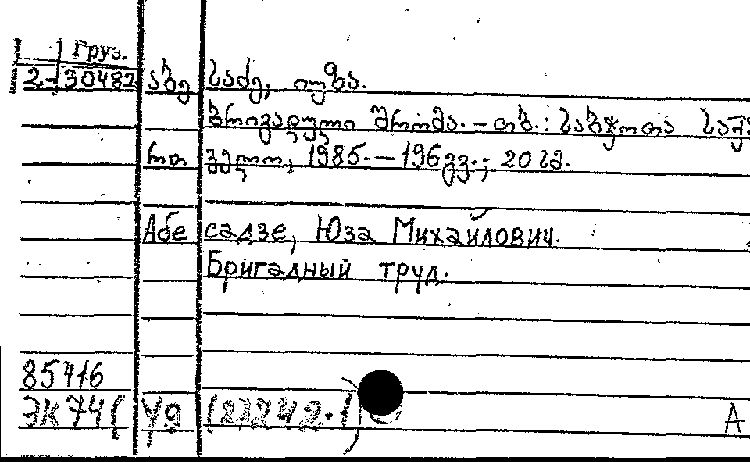 Груз.
2-30482 აბესაძე, იუზა.
ბრიგადული შრომა. – თბ.: საბჭოთა საქ
რთველო, 1985. – 196 გვ.; 20 სმ.
Абесадзе, Юза Михайлович.
Бригадный труд.
85416
А